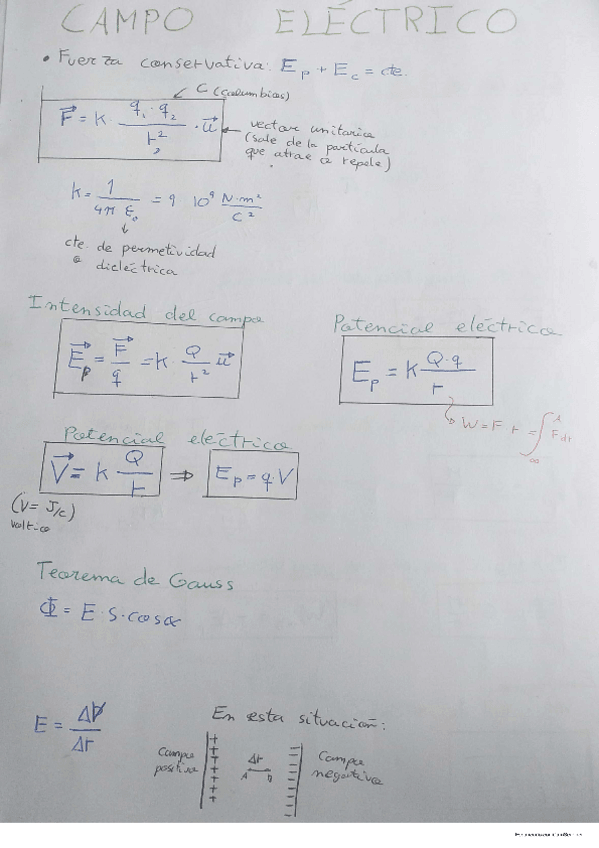 CAMPO ELÉCTRICO
• Fuerza conservativa: Ep + Ec = cte.
C (Coulombios)
F = k · q1 · q2 / r² · u
vector unitario
(sale de la partícula
que atrae o repele)
k = 1 / 4π ε₀ = 9 10⁹ N·m² / C²
cte. de permetividad
o dieléctrica
Intensidad del campo
Ep = F / q = k · Q / r² u
Potencial eléctrico
Ep = k Q·q / r
W = F r = ∫ F dr
∞
Potencial eléctrico
V = k Q / r ⇒ Ep = q·V
(V = J/c)
voltio
Teorema de Gauss
Φ = E · S · cosα
E = ΔV / Δr
En esta situación:
Campo
positivo
+ + + + + + +
Δr
A B
− − − − − − −
Campo
negativo